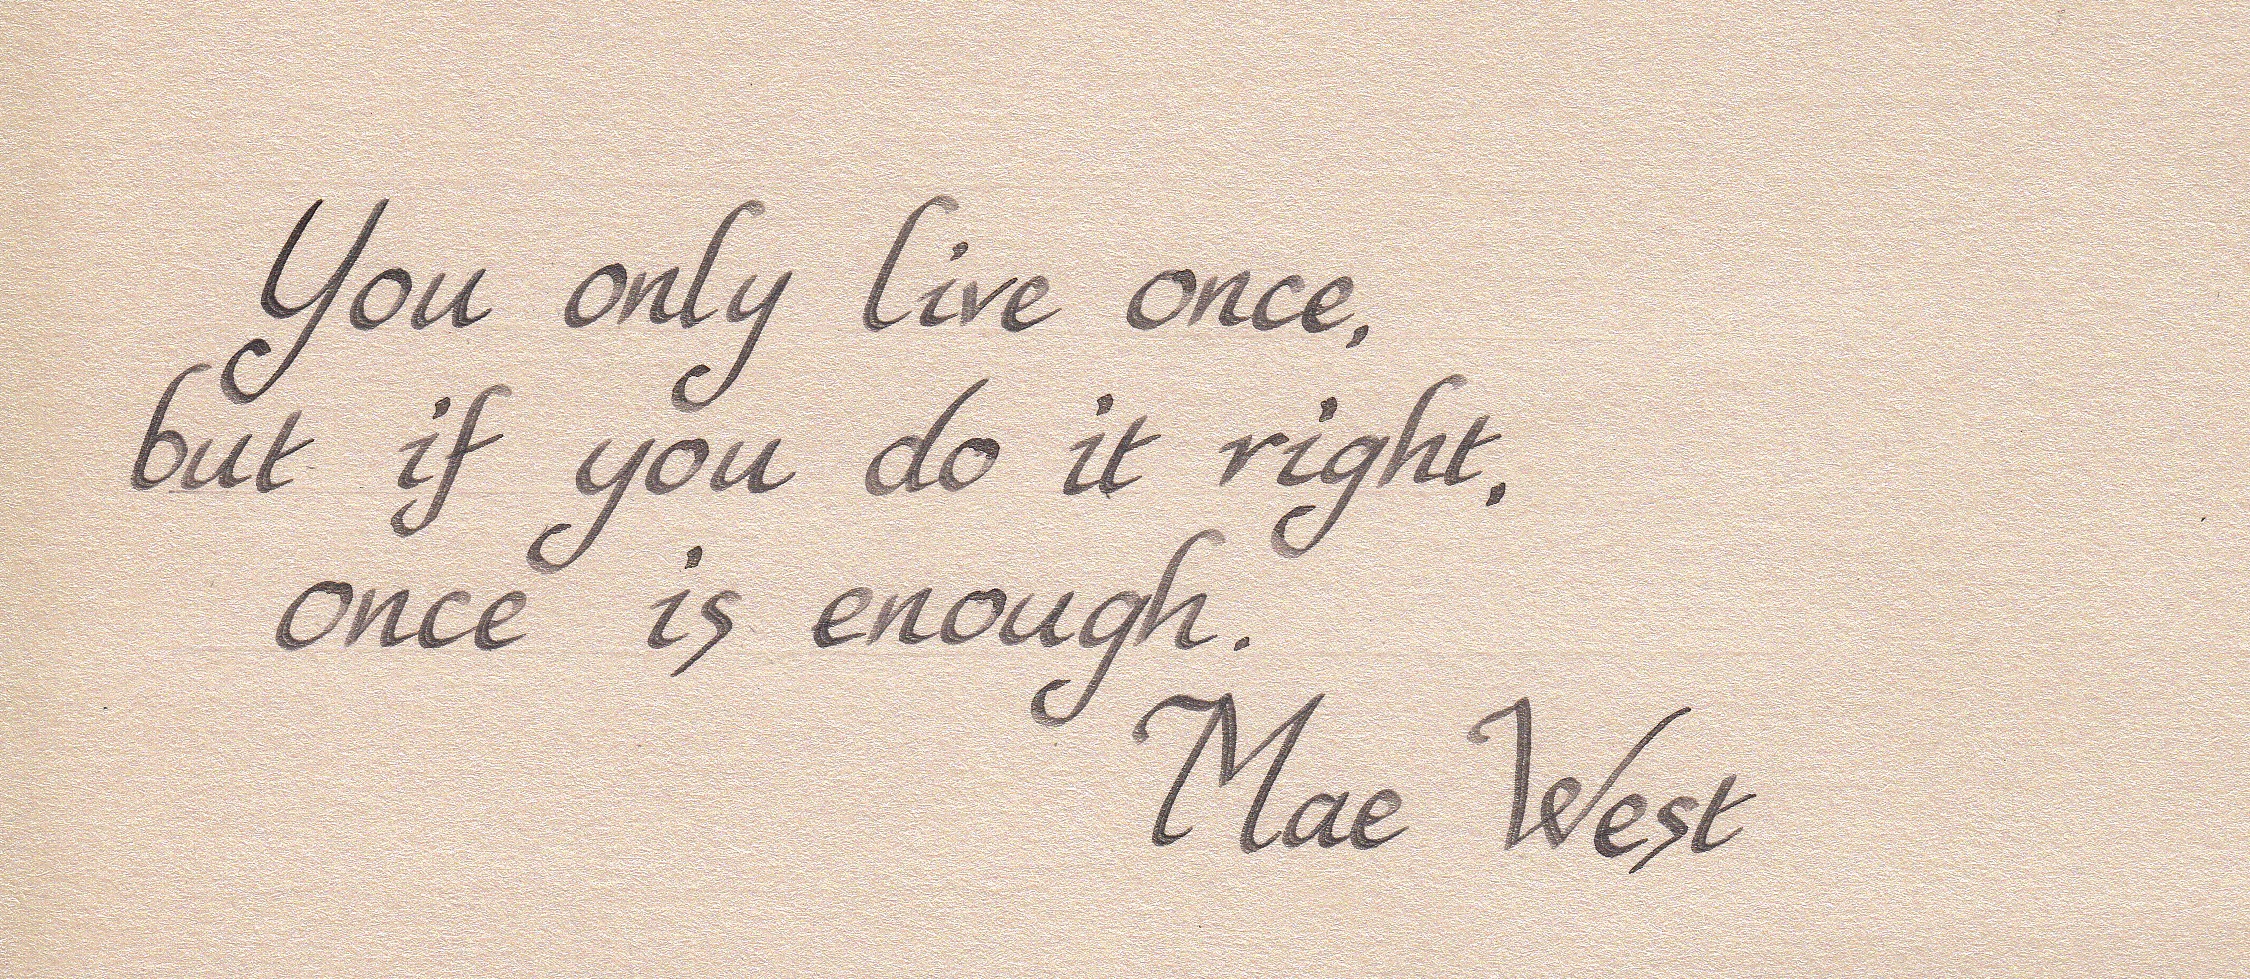 You only live once,
but if you do it right,
once is enough.
Mae West